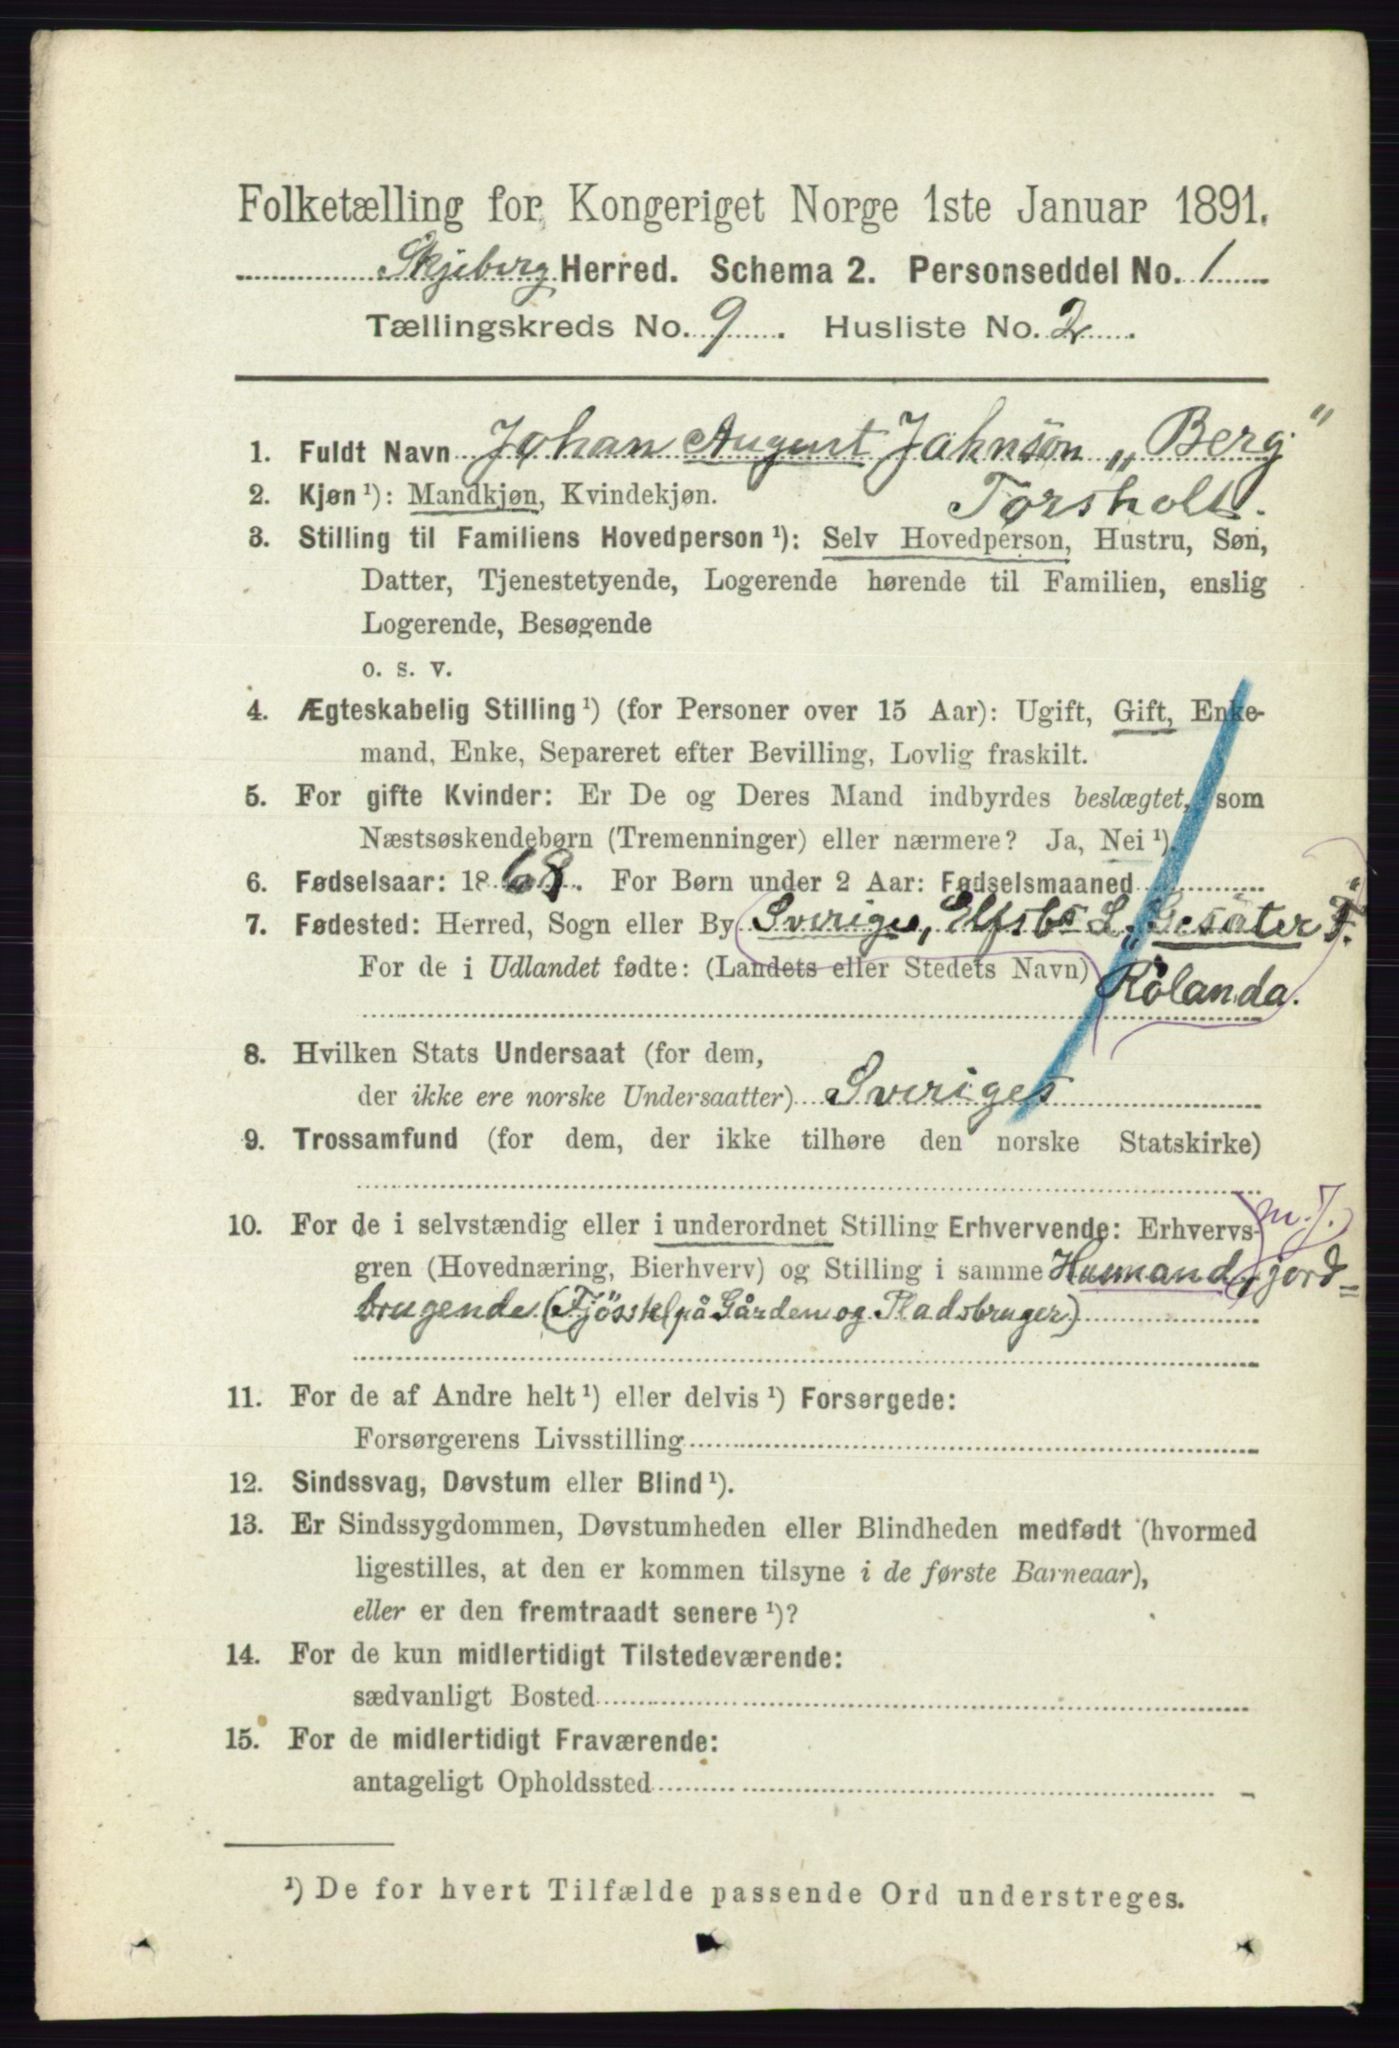 Folketælling for Kongeriget Norge 1ste Januar 1891.
Skjeberg Herred. Schema 2. Personseddel No. 1
Tællingskreds No. 9. Husliste No. 2.
1. Fuldt Navn Johan August Johnsön „Berg"
Torsholt.
2. Kjøn ¹): Mandkjøn, Kvindekjøn.
3. Stilling til Familiens Hovedperson ¹): Selv Hovedperson, Hustru, Søn,
Datter, Tjenestetyende, Logerende hørende til Familien, enslig
Logerende, Besøgende
o. s. v.
4. Ægteskabelig Stilling ¹) (for Personer over 15 Aar): Ugift, Gift, Enke-
mand, Enke, Separeret efter Bevilling, Lovlig fraskilt.
5. For gifte Kvinder: Er De og Deres Mand indbyrdes beslægtet, som
Næstsøskendebørn (Tremenninger) eller nærmere? Ja, Nei ¹).
6. Fødselsaar: 1868. For Børn under 2 Aar: Fødselsmaaned
7. Fødested: Herred, Sogn eller By Sverige, Elfsb. L. „Gesäter F."
For de i Udlandet fødte: (Landets eller Stedets Navn) Rölanda.
8. Hvilken Stats Undersaat (for dem,
der ikke ere norske Undersaatter) Sveriges
9. Trossamfund (for dem, der ikke tilhøre den norske Statskirke)
m. J.
10. For de i selvstændig eller i underordnet Stilling Erhvervende: Erhvervs-
gren (Hovednæring, Bierhverv) og Stilling i samme Husmand, jord=
brugende (Fjösstel på Gården og Pladsbruger)
11. For de af Andre helt ¹) eller delvis ¹) Forsørgede:
Forsørgerens Livsstilling
12. Sindssvag, Døvstum eller Blind ¹).
13. Er Sindssygdommen, Døvstumheden eller Blindheden medfødt (hvormed
ligestilles, at den er kommen tilsyne i de første Barneaar),
eller er den fremtraadt senere ¹)?
14. For de kun midlertidigt Tilstedeværende:
sædvanligt Bosted
15. For de midlertidigt Fraværende:
antageligt Opholdssted
¹) De for hvert Tilfælde passende Ord understreges.